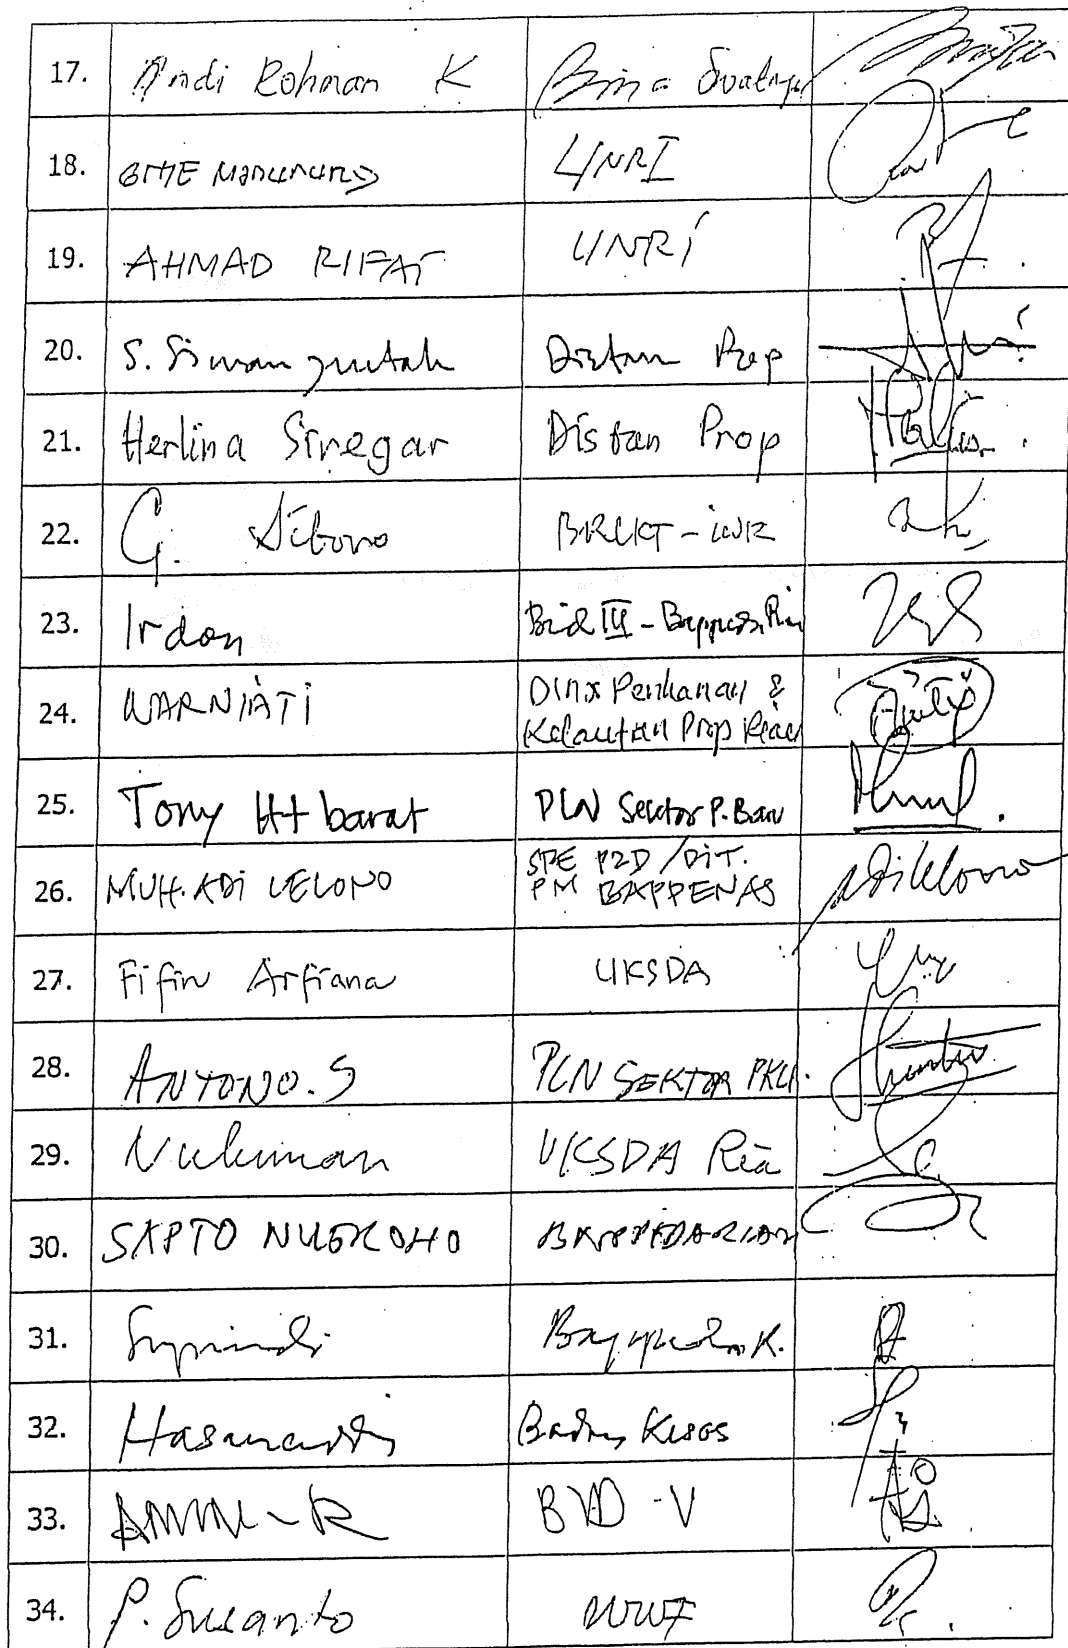 17. Andi Rohman K Bina
18. UNRI
19. AHMAD RIFAI UNRI
20. S. Simanguntah Distan Prop
21. Herlina Siregar Distan Prop
22. G.
23. Irdan Bid III - Bappeda Riau
24. WARNIATI Dinx Perikanan &
Kelautan Prop Riau
25. Tony Htbarat PLN Sektor P. Baru
26. MUH. ADI LELONO SPE P2D / DIT.
PM BAPPENAS
27. Fifin Arfiana UKSDA
28. ANTONO. S PLN SEKTOR PKU.
29. Nukman UKSDA Ria
30. SAPTO NUGROHO BAPPEDA RIAU
31.
32. Hasanuddin Badan Kesos
33. BID - V
34. P. Susanto WWF